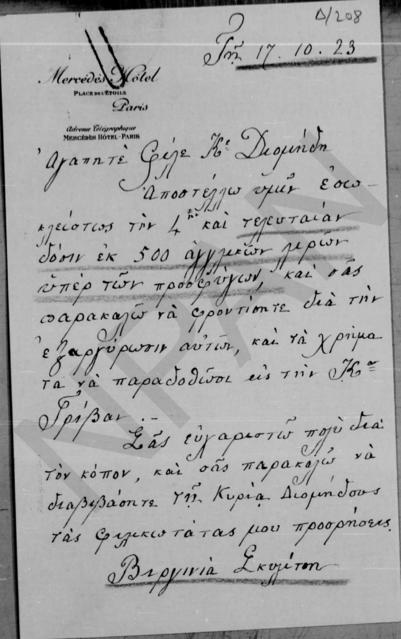 Δ/208
Τῇ 17. 10. 23
Mercédès Hôtel
PLACE DE L'ÉTOILE
Paris
Adresse Télégraphique
MERCÉDÈS HÔTEL-PARIS
Ἀγαπητὲ φίλε Κε Διομήδη
Ἀποστέλλω ὑμῖν ἐσω-
κλείστως τὴν 4ην καὶ τελευταίαν
δόσιν ἐκ 500 ἀγγλικῶν λιρῶν
ὑπὲρ τῶν προσφύγων, καὶ σᾶς
παρακαλῶ νὰ φροντίσητε διὰ τὴν
ἐξαργύρωσιν αὐτῶν, καὶ τὰ χρήμα
τα νὰ παραδοθῶσι εἰς τὴν Καν
Γρίβαν.-
Σᾶς εὐχαριστῶ πολὺ διὰ
τὸν κόπον, καὶ σᾶς παρακαλῶ νὰ
διαβιβάσητε τῇ Κυρίᾳ Διομήδους
τὰς φιλικωτάτας μου προσρήσεις.
Βιργινία Σκυλίτση
NPAN